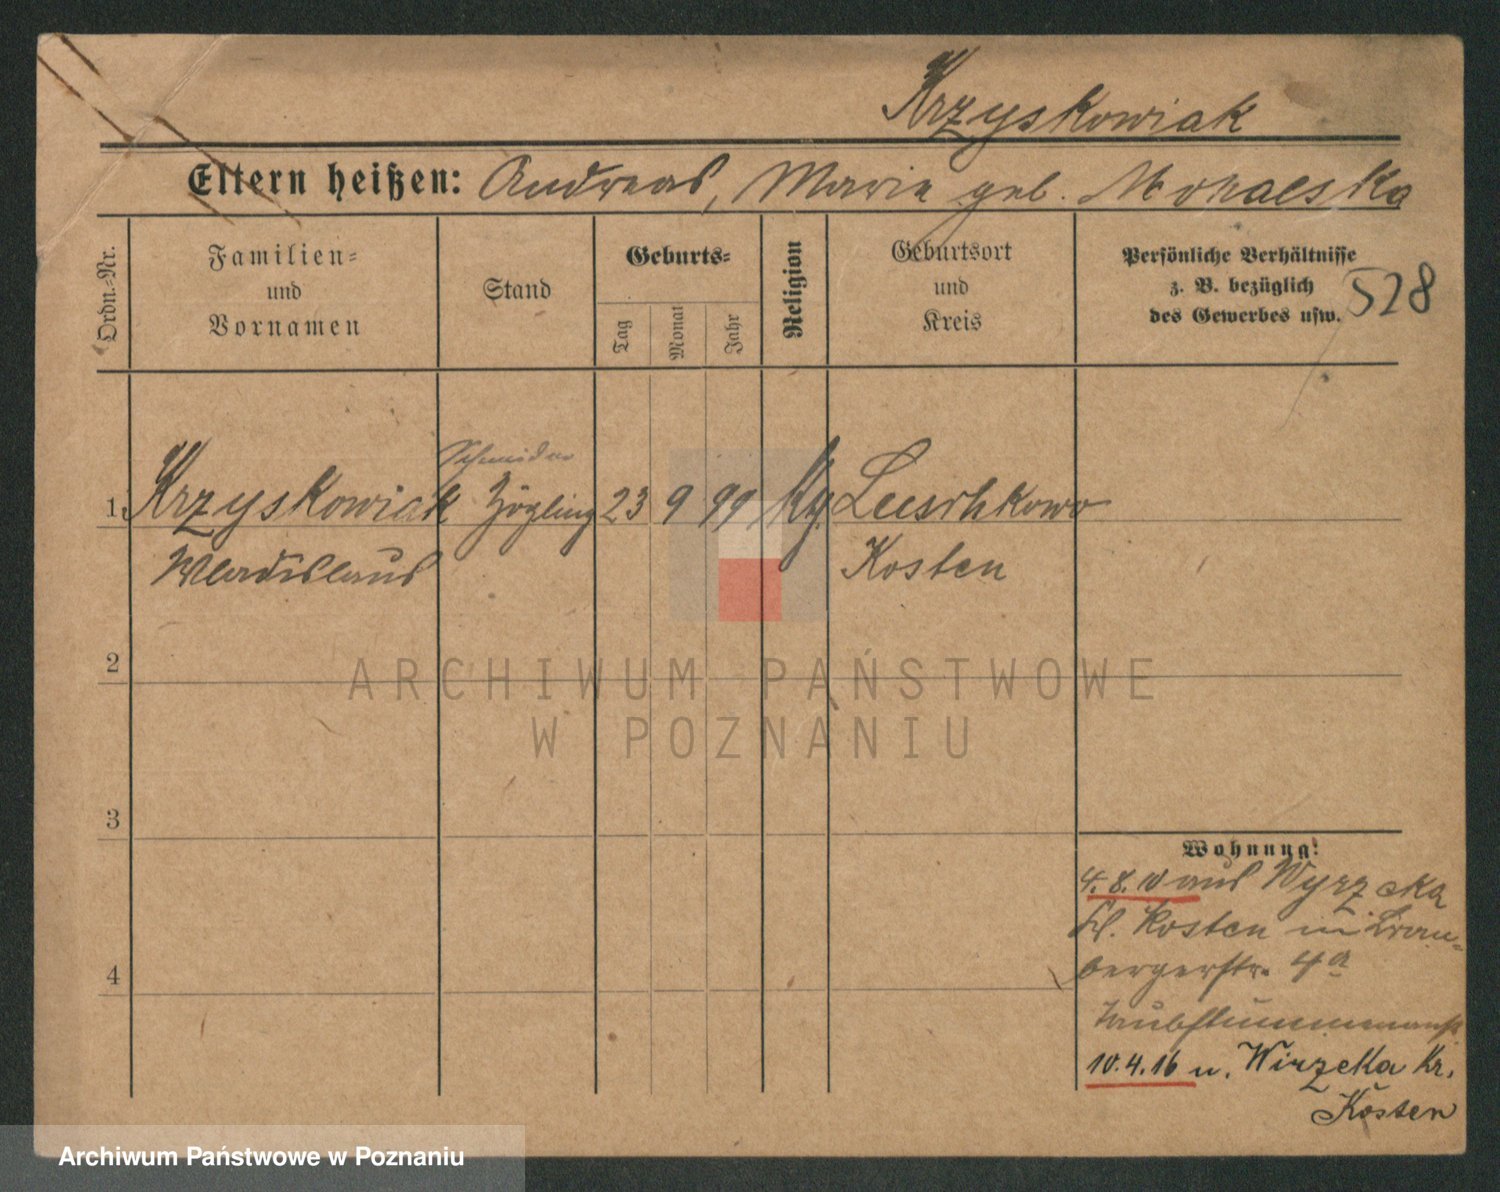 Krzyskowiak
Eltern heißen: Andreas, Marie geb.
Ordn.-Nr.
Familien-
und
Vornamen
Stand
Geburts-
Tag
Monat
Jahr
Religion
Geburtsort
und
Kreis
Persönliche Verhältnisse
z. B. bezüglich
des Gewerbes usw.
528
Schneider
1 Krzyskowiak Zögling 23 9 99 Luschkowo
Wladislaus Kosten
2
3
4
Wohnung:
4. 8. 10 aus Wyrzeka
Kosten in
bergerstr. 4a
Taubstummenanst
10.4.16 n. Wirzeka Kr.
Kosten
ARCHIWUM PAŃSTWOWE
W POZNANIU
Archiwum Państwowe w Poznaniu